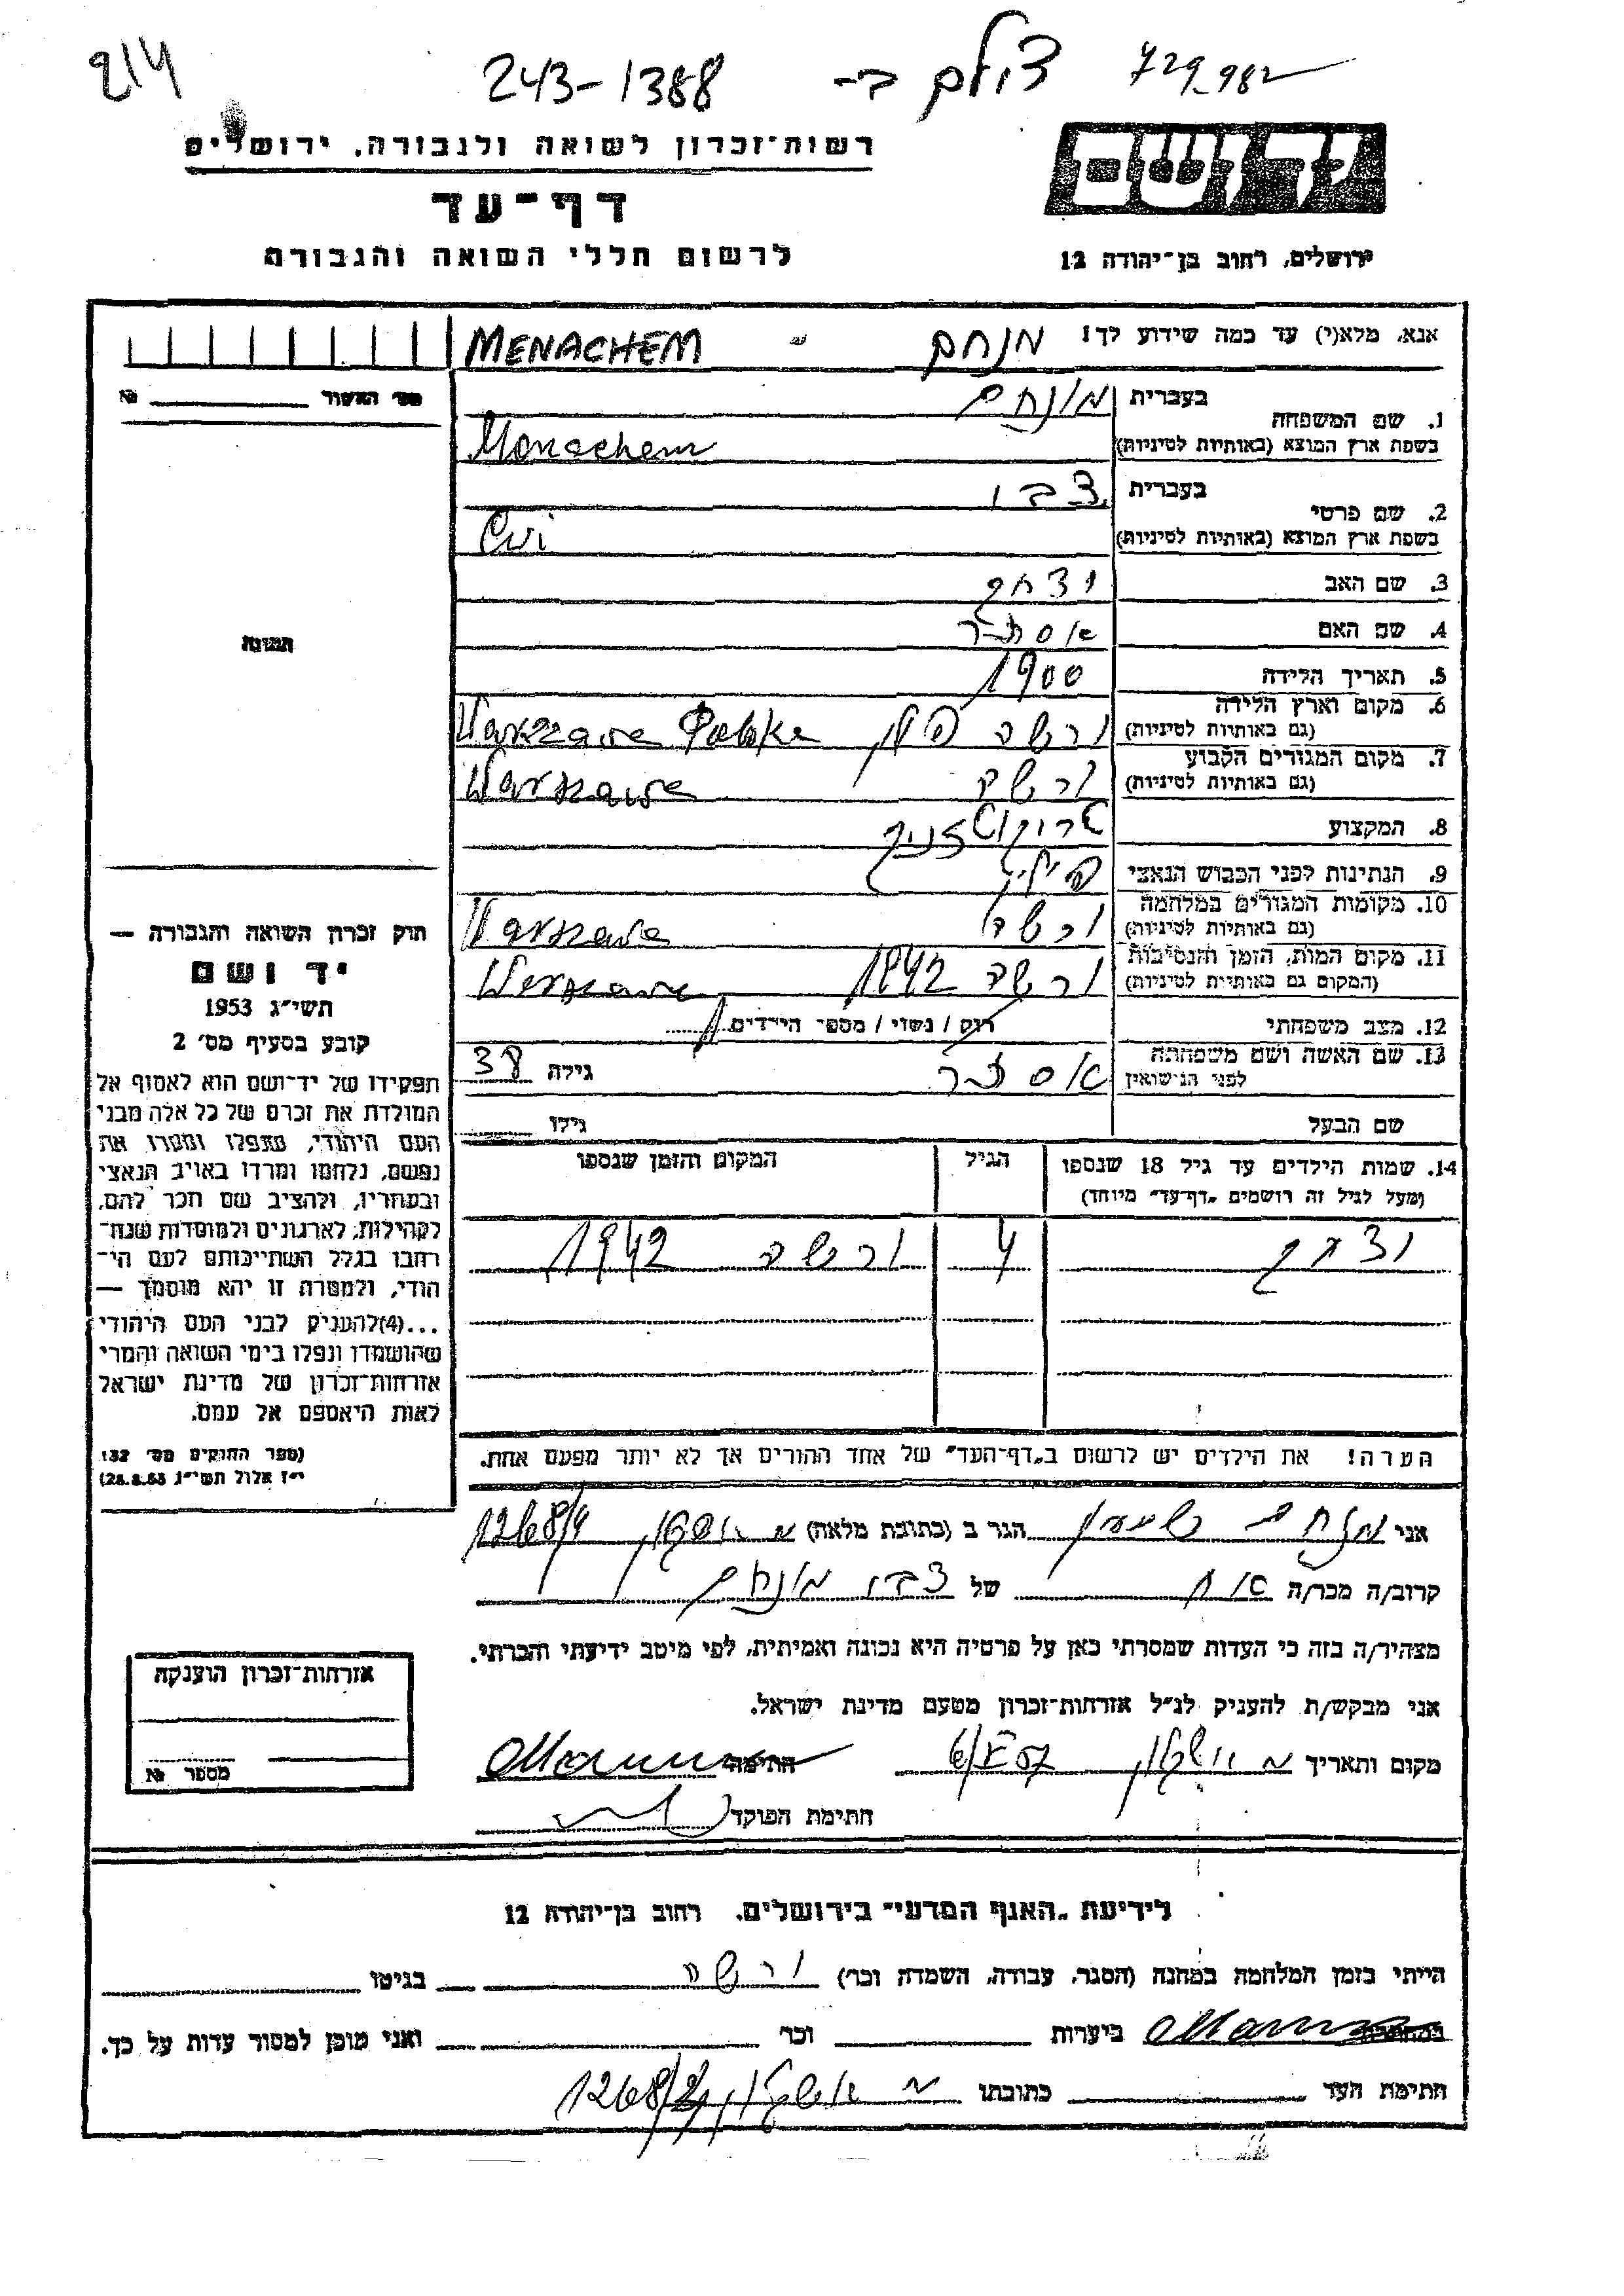 214
243-1388 צולם ב-
729.982
רשות־זכרון לשואה ולגבורה, ירושלים
דף־עד
לרשום חללי השואה והגבורה
ידושם
ירושלים, רחוב בן־יהודה 12
אנא, מלא(י) עד כמה שידוע לך! מנחם - MENACHEM
מס׳ האשור № 
1. שם המשפחה
בעברית מנחם
בשפת ארץ המוצא (באותיות לטיניות) Menachem
2. שם פרטי
בעברית צבי
בשפת ארץ המוצא (באותיות לטיניות) Cwi
3. שם האב יצחק
4. שם האם אסתר
5. תאריך הלידה 1900
6. מקום וארץ הלידה (גם באותיות לטיניות) ורשה פולין Warszawa Polska
7. מקום המגורים הקבוע (גם באותיות לטיניות) ורשה Warszawa
8. המקצוע
9. הנתינות לפני הכבוש הנאצי פולין
10. מקומות המגורים במלחמה (גם באותיות לטיניות) ורשה Warszawa
11. מקום המות, הזמן והנסיבות (המקום גם באותיות לטיניות) ורשה 1942 Warszawa
12. מצב משפחתי רוק / נשוי / מספר הילדים 1
13. שם האשה ושם משפחתה לפני הנישואין אסתר גילה 38
שם הבעל גילו
14. שמות הילדים עד גיל 18 שנספו
(מעל לגיל זה רושמים „דף־עד״ מיוחד)
הגיל
המקום והזמן שנספו
יצחק 4 ורשה 1942
תמונה
חוק זכרון השואה והגבורה —
יד ושם
תשי״ג 1953
קובע בסעיף מס׳ 2
תפקידו של יד־ושם הוא לאסוף אל
המולדת את זכרם של כל אלה מבני
העם היהודי, שנפלו ומסרו את
נפשם, נלחמו ומרדו באויב הנאצי
ובעוזריו, ולהציב שם וזכר להם,
לקהילות, לארגונים ולמוסדות שנח־
רבו בגלל השתייכותם לעם הי־
הודי, ולמטרה זו יהא מוסמך —
...(4)להעניק לבני העם היהודי
שהושמדו ונפלו בימי השואה והמרי
אזרחות־זכרון של מדינת ישראל
לאות היאספם אל עמם.
(ספר החוקים מס׳ 132
י״ז אלול תשי״ג 28.8.53)
הערה! את הילדים יש לרשום ב„דף־העד״ של אחד ההורים אך לא יותר מפעם אחת.
אני מנחם שמעון הגר ב (כתובת מלאה) 1268/4
קרוב/ה מכר/ה אח של צבי מנחם
מצהיר/ה בזה כי העדות שמסרתי כאן על פרטיה היא נכונה ואמיתית, לפי מיטב ידיעתי והכרתי.
אני מבקש/ת להעניק לנ״ל אזרחות־זכרון מטעם מדינת ישראל.
מקום ותאריך 57 חתימה
חתימת הפוקד
אזרחות־זכרון הוענקה
מספר №
לידיעת „האגף המדעי״ בירושלים, רחוב בן־יהודה 12
הייתי בזמן המלחמה במחנה (הסגר, עבודה, השמדה וכו׳) ורשה בגיטו
ביערות וכו׳ ואני מוכן למסור עדות על כך.
חתימת העד כתובתו